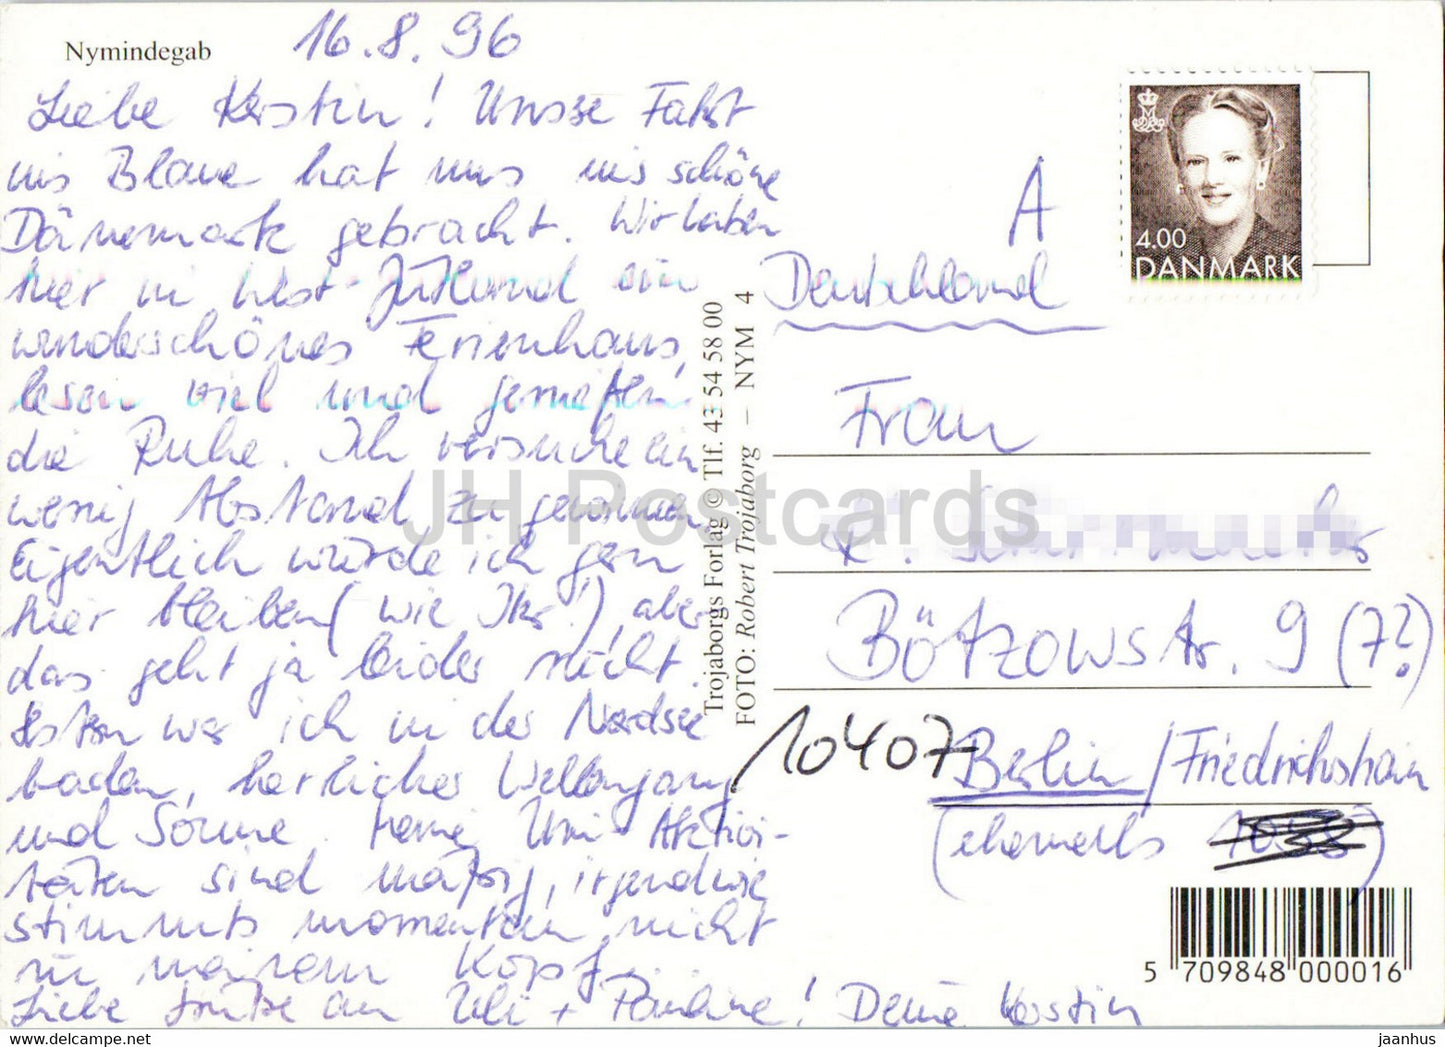 Nymindegab
16.8.96
Liebe Kerstin! Unsere Fahrt
ins Blaue hat uns ins schöne
Dänemark gebracht. Wir haben
hier in West-Jütland ein
wunderschönes Ferienhaus,
lesen viel und genießen
die Ruhe. Ich versuche ein
wenig Abstand zu gewinnen.
Eigentlich würde ich gern
hier bleiben (wie Ihr!), aber
das geht ja leider nicht.
Gestern war ich in der Nordsee
baden, herrlicher Wellengang
und Sonne. Meine Uni-Aktivi-
täten sind mäßig, irgendwie
stimmts momentan nicht
in meinem Kopf.
Liebe Grüße an Uli + Pauline! Deine Kerstin
Trojaborgs Forlag © Tlf. 43 54 58 00
FOTO: Robert Trojaborg – NYM 4
A
4.00
DANMARK
Deutschland
Frau
K.
Bötzowstr. 9 (7?)
10407 Berlin/Friedrichshain
(ehemals 1055)
5 709848 000016
JH Postcards
HipPostcard.com
jaanhus